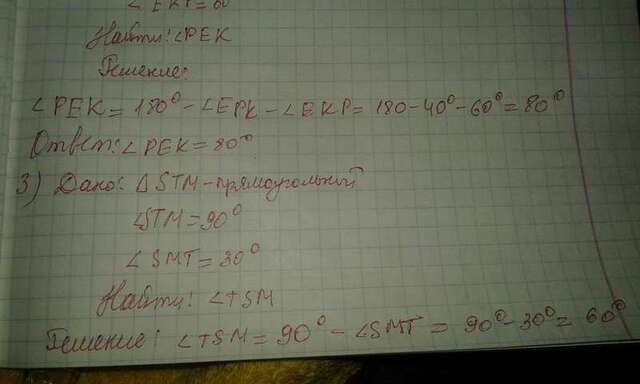 ∠EKP=60
Найти: ∠PEK
Решение:
∠PEK=180°-∠EPK-∠EKP=180-40°-60°=80°
Ответ: ∠PEK=80°
3) Дано: ΔSTM-прямоугольный
∠STM=90°
∠SMT=30°
Найти: ∠TSM
Решение: ∠TSM=90°-∠SMT=90°-30°=60°